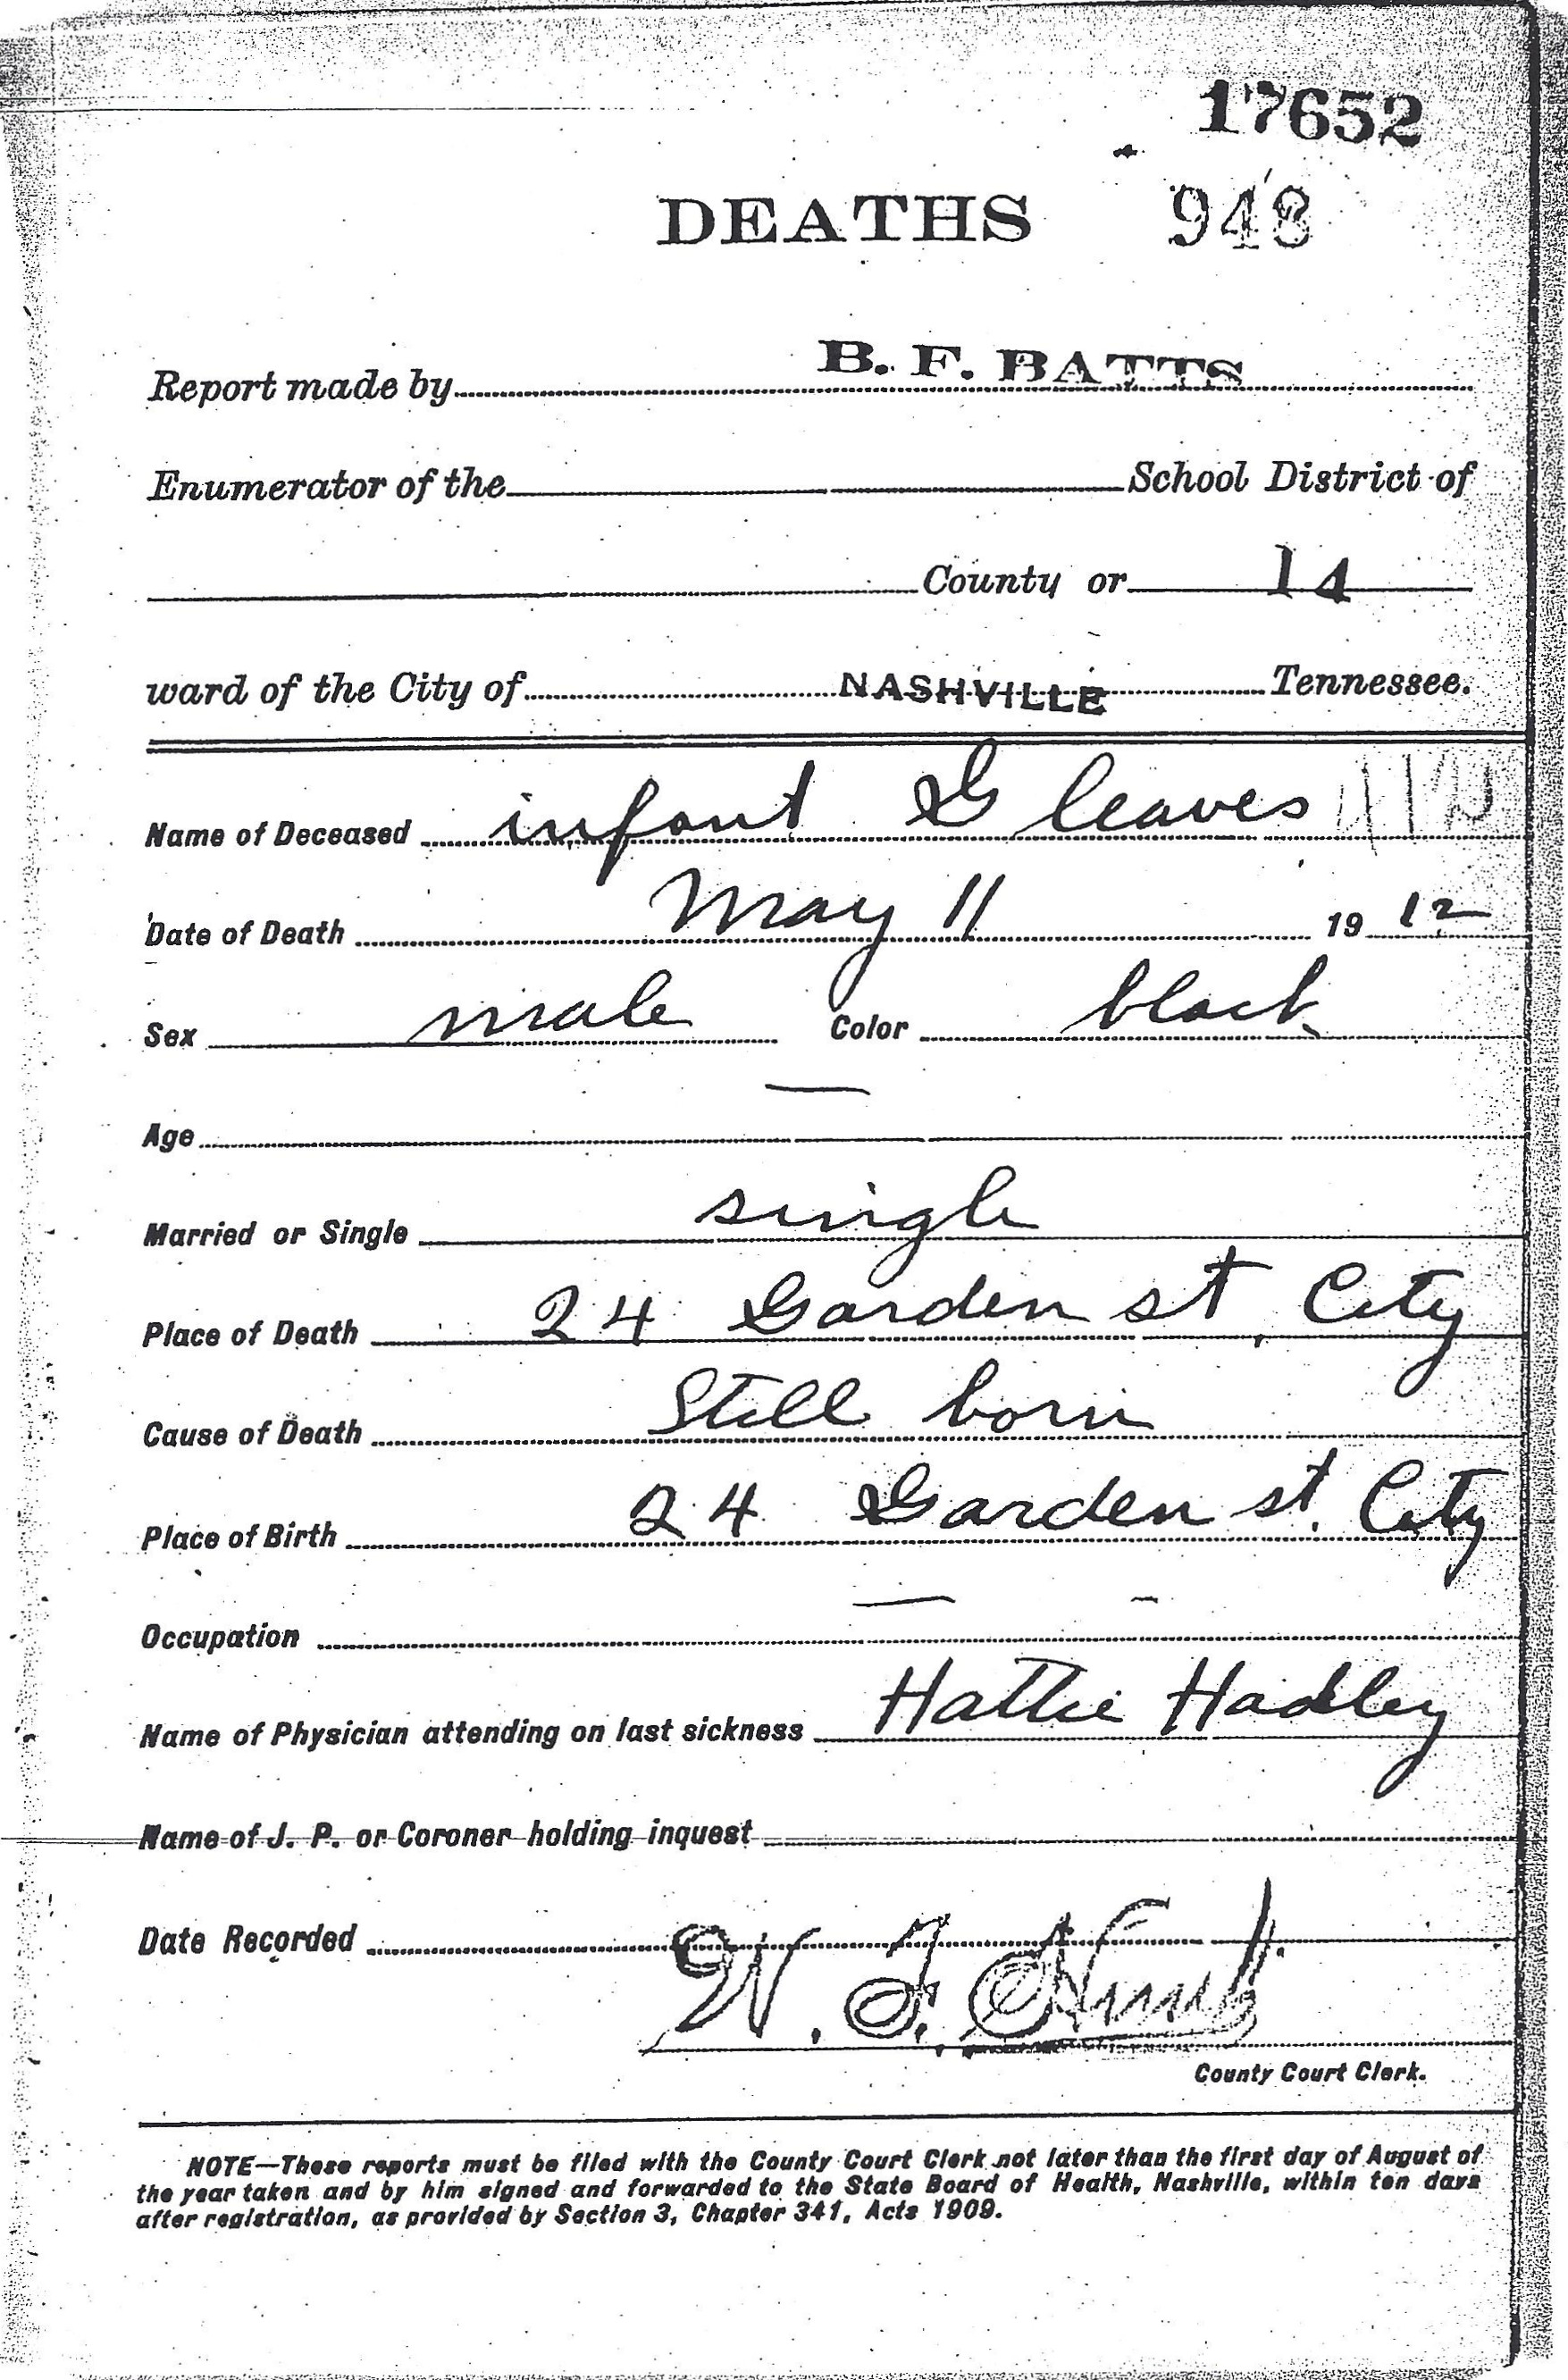 17652
DEATHS 948
Report made by B. F. BATTS
Enumerator of the School District of
County or 14
ward of the City of NASHVILLE Tennessee.
Name of Deceased infant Gleaves
Date of Death May 11 19 12
Sex male Color black
Age —
Married or Single single
Place of Death 24 Garden st, City
Cause of Death Still born
Place of Birth 24 Garden st. City
Occupation — -
Name of Physician attending on last sickness Hattie Hadley
Name of J. P. or Coroner holding inquest
Date Recorded
W. 
County Court Clerk.
NOTE—These reports must be filed with the County Court Clerk not later than the first day of August of
the year taken and by him signed and forwarded to the State Board of Health, Nashville, within ten days
after registration, as provided by Section 3, Chapter 341, Acts 1909.